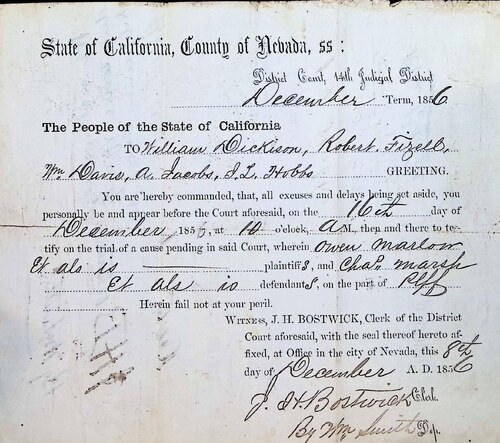 State of California, County of Nevada, ss:
District Court, 14th Judicial District
December Term, 1856
The People of the State of California
TO William Dickison, Robert Fizell,
Wm Davis, A. Jacobs, J. L. Hobbs GREETING.
You are hereby commanded, that, all excuses and delays being set aside, you
personally be and appear before the Court aforesaid, on the 16th day of
December 1856, at 10 o'clock, A M, then and there to tes-
tify on the trial of a cause pending in said Court, wherein Owen Marlow
Et als is plaintiffs, and Chas. Marsh
Et als is defendants, on the part of Plff
Herein fail not at your peril.
WITNESS, J. H. BOSTWICK, Clerk of the District
Court aforesaid, with the seal thereof hereto af-
fixed, at Office in the city of Nevada, this 8th
day of December A. D. 1856
J. H. Bostwick Clerk.
By Wm Smith Dep.